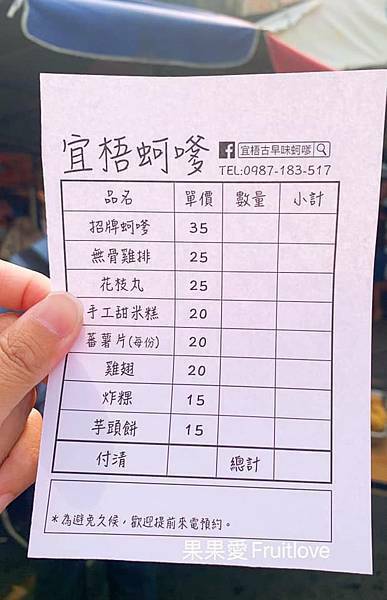 宜梧蚵嗲
f 宜梧古早味蚵嗲
TEL:0987-183-517
品名 單價 數量 小計
招牌蚵嗲 35
無骨雞排 25
花枝丸 25
手工甜米糕 20
蕃薯片(每份) 20
雞翅 20
炸粿 15
芋頭餅 15
付清 總計
*為避免久候,歡迎提前來電預約。
果果愛 Fruitlove